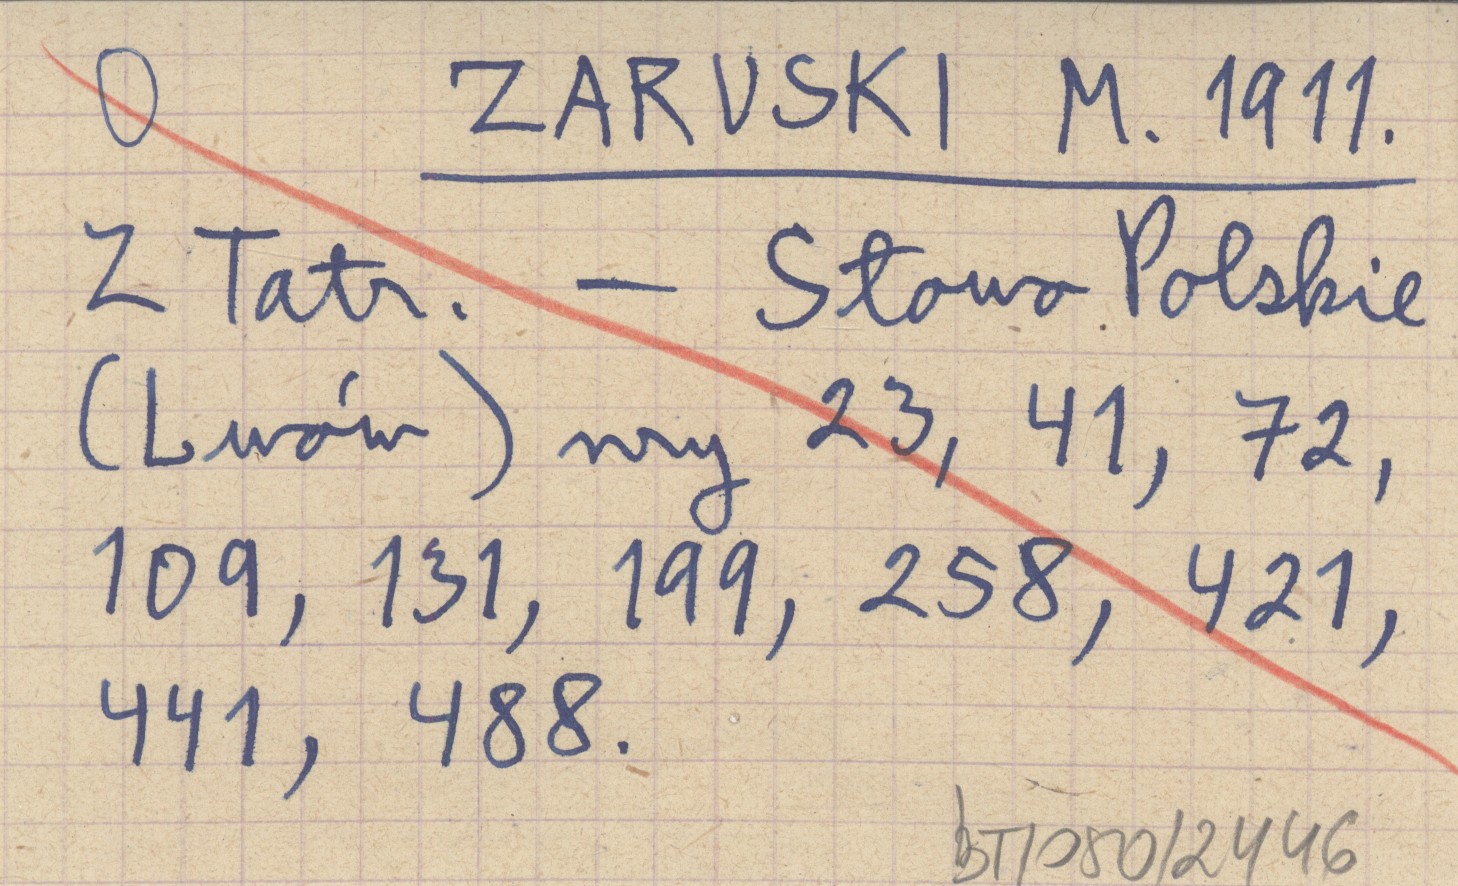 0 ZARUSKI M. 1911.
Z Tatr. — Słowo Polskie
(Lwów) nry 23, 41, 72,
109, 131, 199, 258, 421,
441, 488.
BT/080/2446